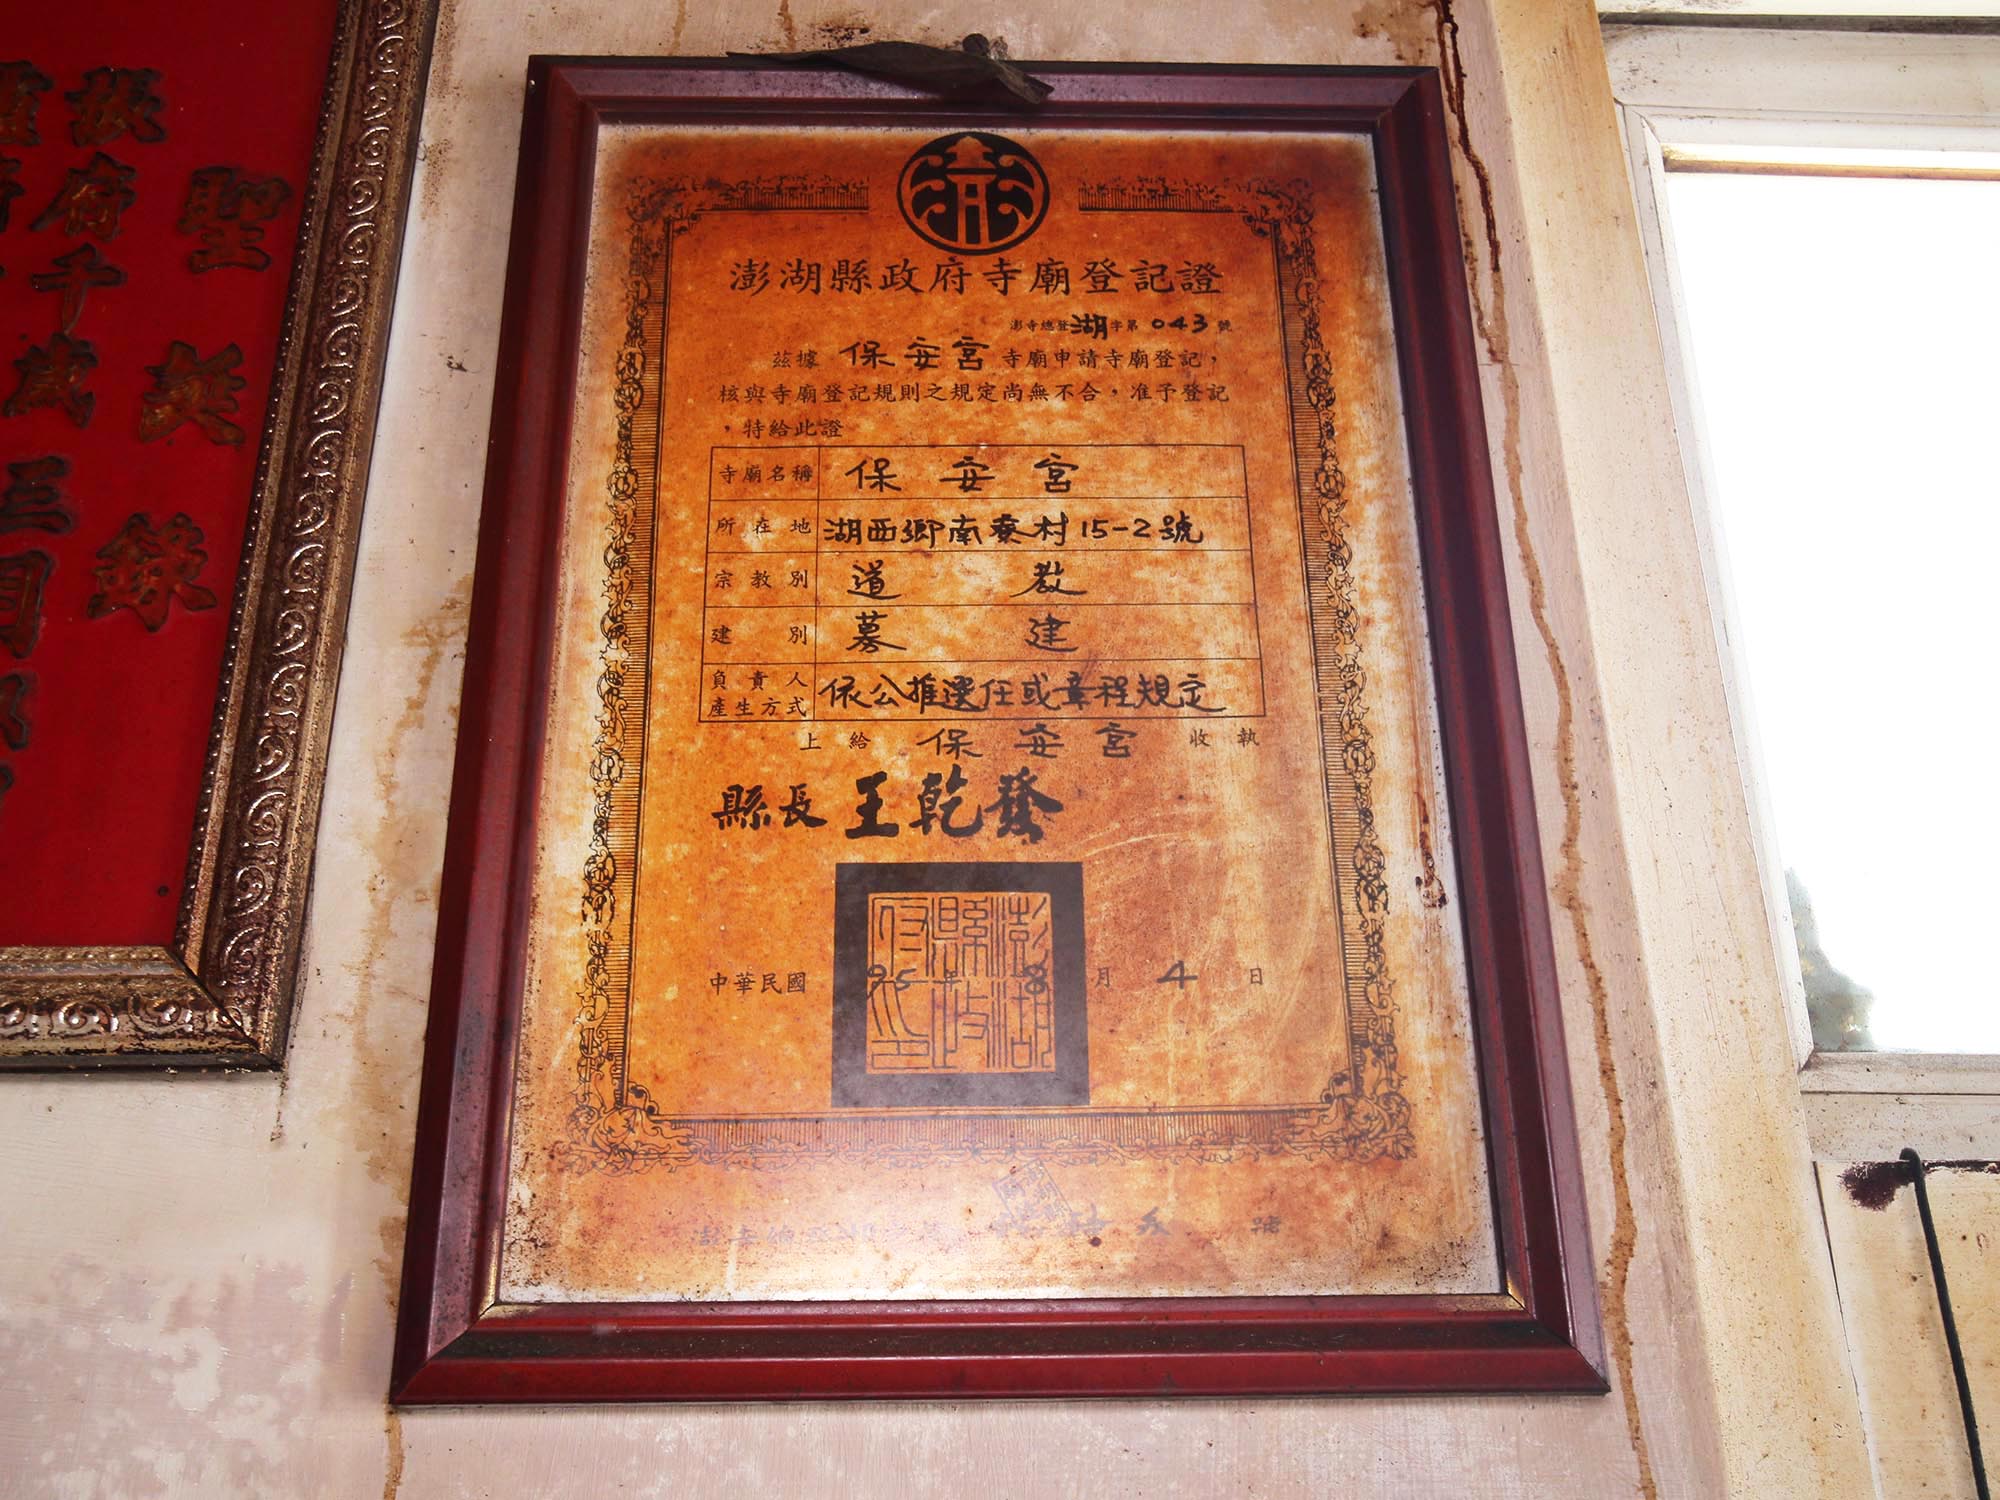 澎湖縣政府寺廟登記證
澎寺總登湖字第 043 號
茲據 保安宮 寺廟申請寺廟登記，
核與寺廟登記規則之規定尚無不合，准予登記
，特給此證
寺廟名稱 保安宮
所在地 湖西鄉南寮村15-2號
宗教別 道教
建別 募建
負責人產生方式 依公推選任或章程規定
上給 保安宮 收執
縣長 王乾發
中華民國 95 年 8 月 4 日
澎湖縣政府印
聖
振府千歲
三